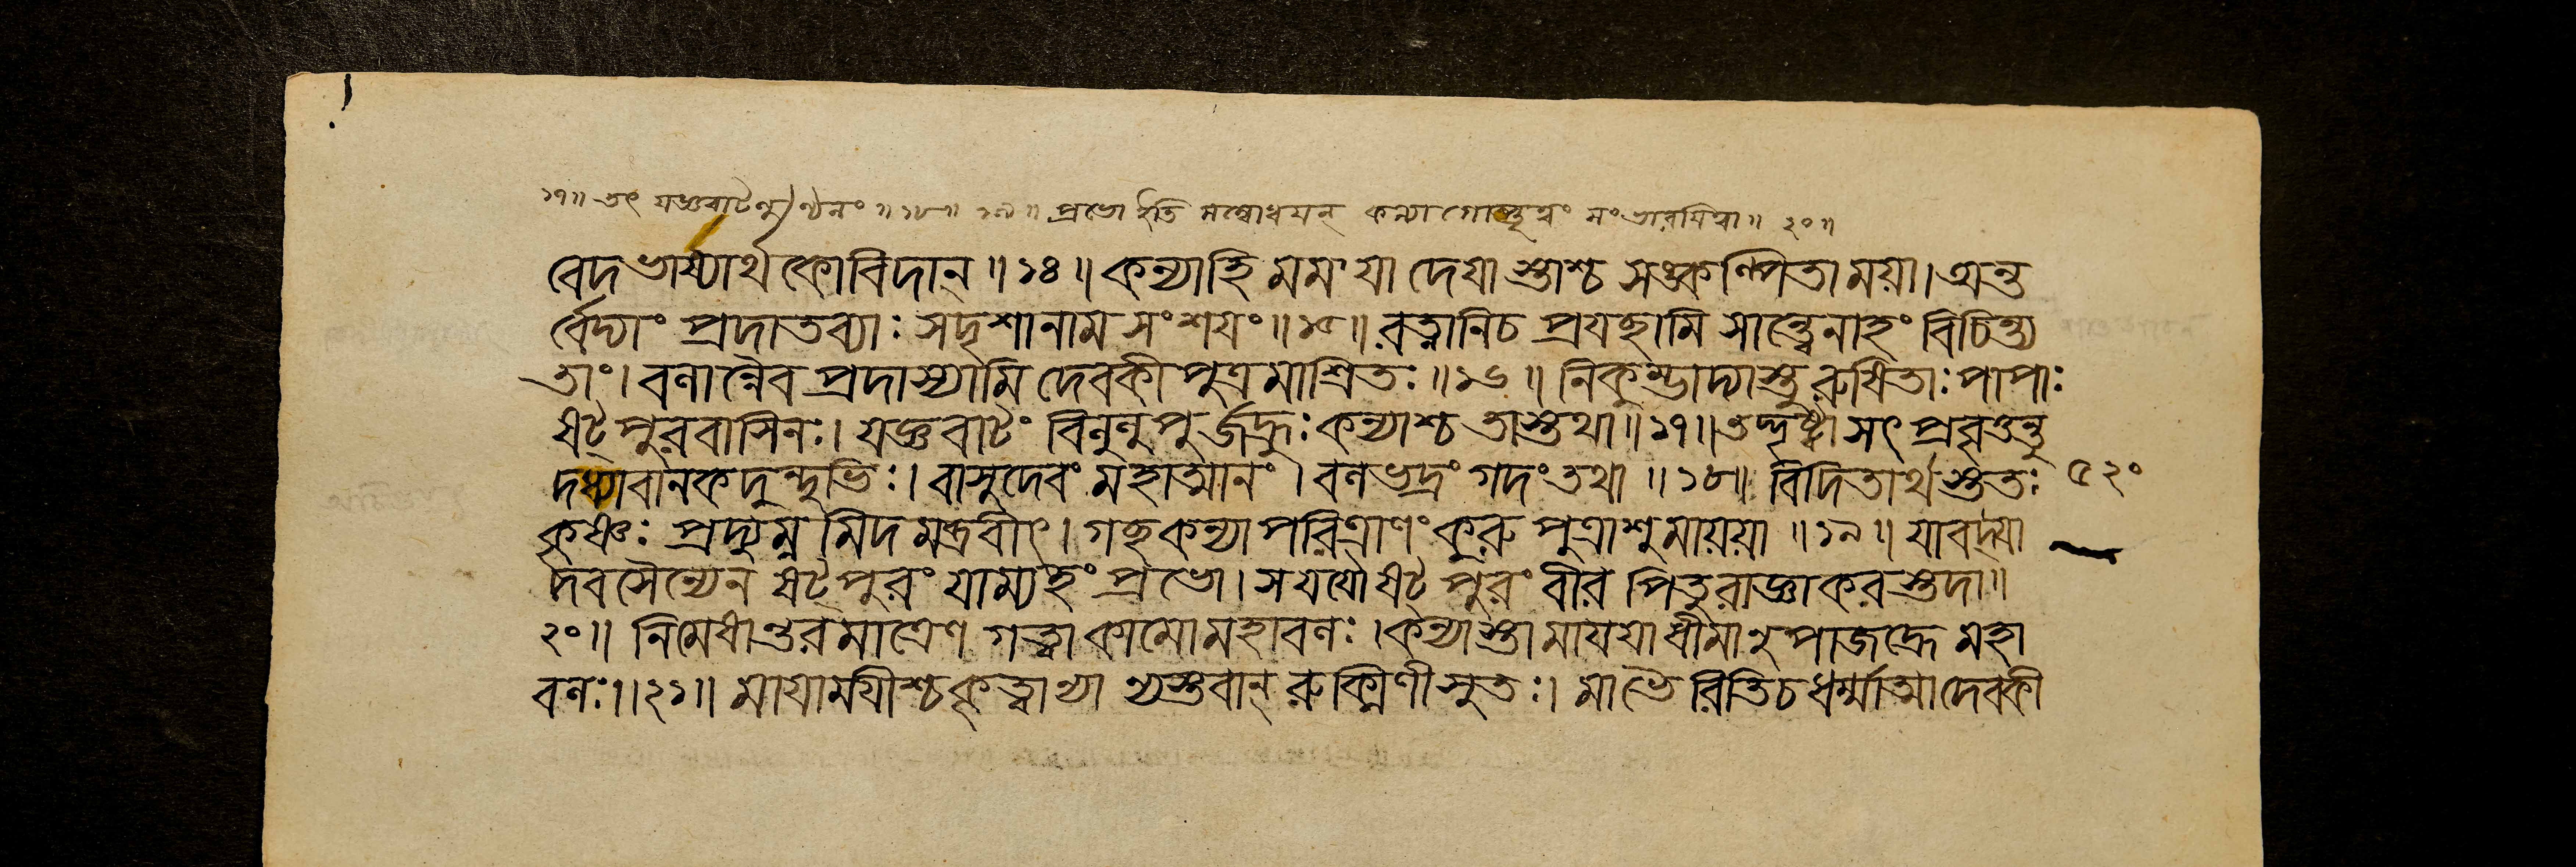 ১৭॥ তৎ যজ্ঞবাটলুণ্ঠনং ॥১৮॥ ১৯॥ প্রভো ইতি সম্বোধয়ন্ কন্যাগোপ্তৃত্বং সংভাবয়িত্বা॥ ২০॥
বেদভাষ্যার্থকোবিদান্॥১৪॥ কন্যাহি মম যা দেযা স্তাশ্চ সঙ্কল্পিতা ময়া। অন্ত
র্বেদ্যাং প্রদাতব্যাঃ সদৃশানাম সংশযং॥১৫॥ রত্নানিচ প্রযছামি সান্ত্বেনাহং বিচিন্ত্য
তাং। বলান্নৈব প্রদাস্যামি দেবকীপুত্রমাশ্রিতঃ॥১৬॥ নিকুম্ভাদ্যাস্তু রুষিতাঃ পাপাঃ
ষট্পুরবাসিনঃ। যজ্ঞবাটং বিলুলুপুর্জহ্রুঃ কন্যাশ্চ তাস্তথা॥১৭॥ তদ্দৃষ্ট্বা সৎপ্রবৃত্তন্তু
দধ্যাবানকদুন্দুভিঃ। বাসুদেবং মহাত্মানং। বলভদ্রং গদং তথা॥১৮॥ বিদিতার্থস্ততঃ
৫২০
কৃষ্ণঃ প্রদ্যুম্নমিদমব্রবীৎ। গছকন্যাপরিত্রাণং কুরু পুত্রাশুমায়য়া॥১৯॥ যাবদ্যা
দবসৈন্যেন ষট্পুরং যাম্যহং প্রভো। সযযৌ ষট্পুরং বীর পিতুরাজ্ঞাকরস্তদা॥
২০॥ নিমেষান্তরমাত্রেণ গত্বা কামো মহাবলঃ। কন্যাস্তা মায়যা ধীমানুপাজহ্রে মহা
বলঃ॥২১॥ মাযাময়ীশ্চকৃত্বান্যা ন্যস্তবান্ রুক্মিণীসুতঃ। মাভৈরিতিচ ধর্ম্মাত্মা দেবকী